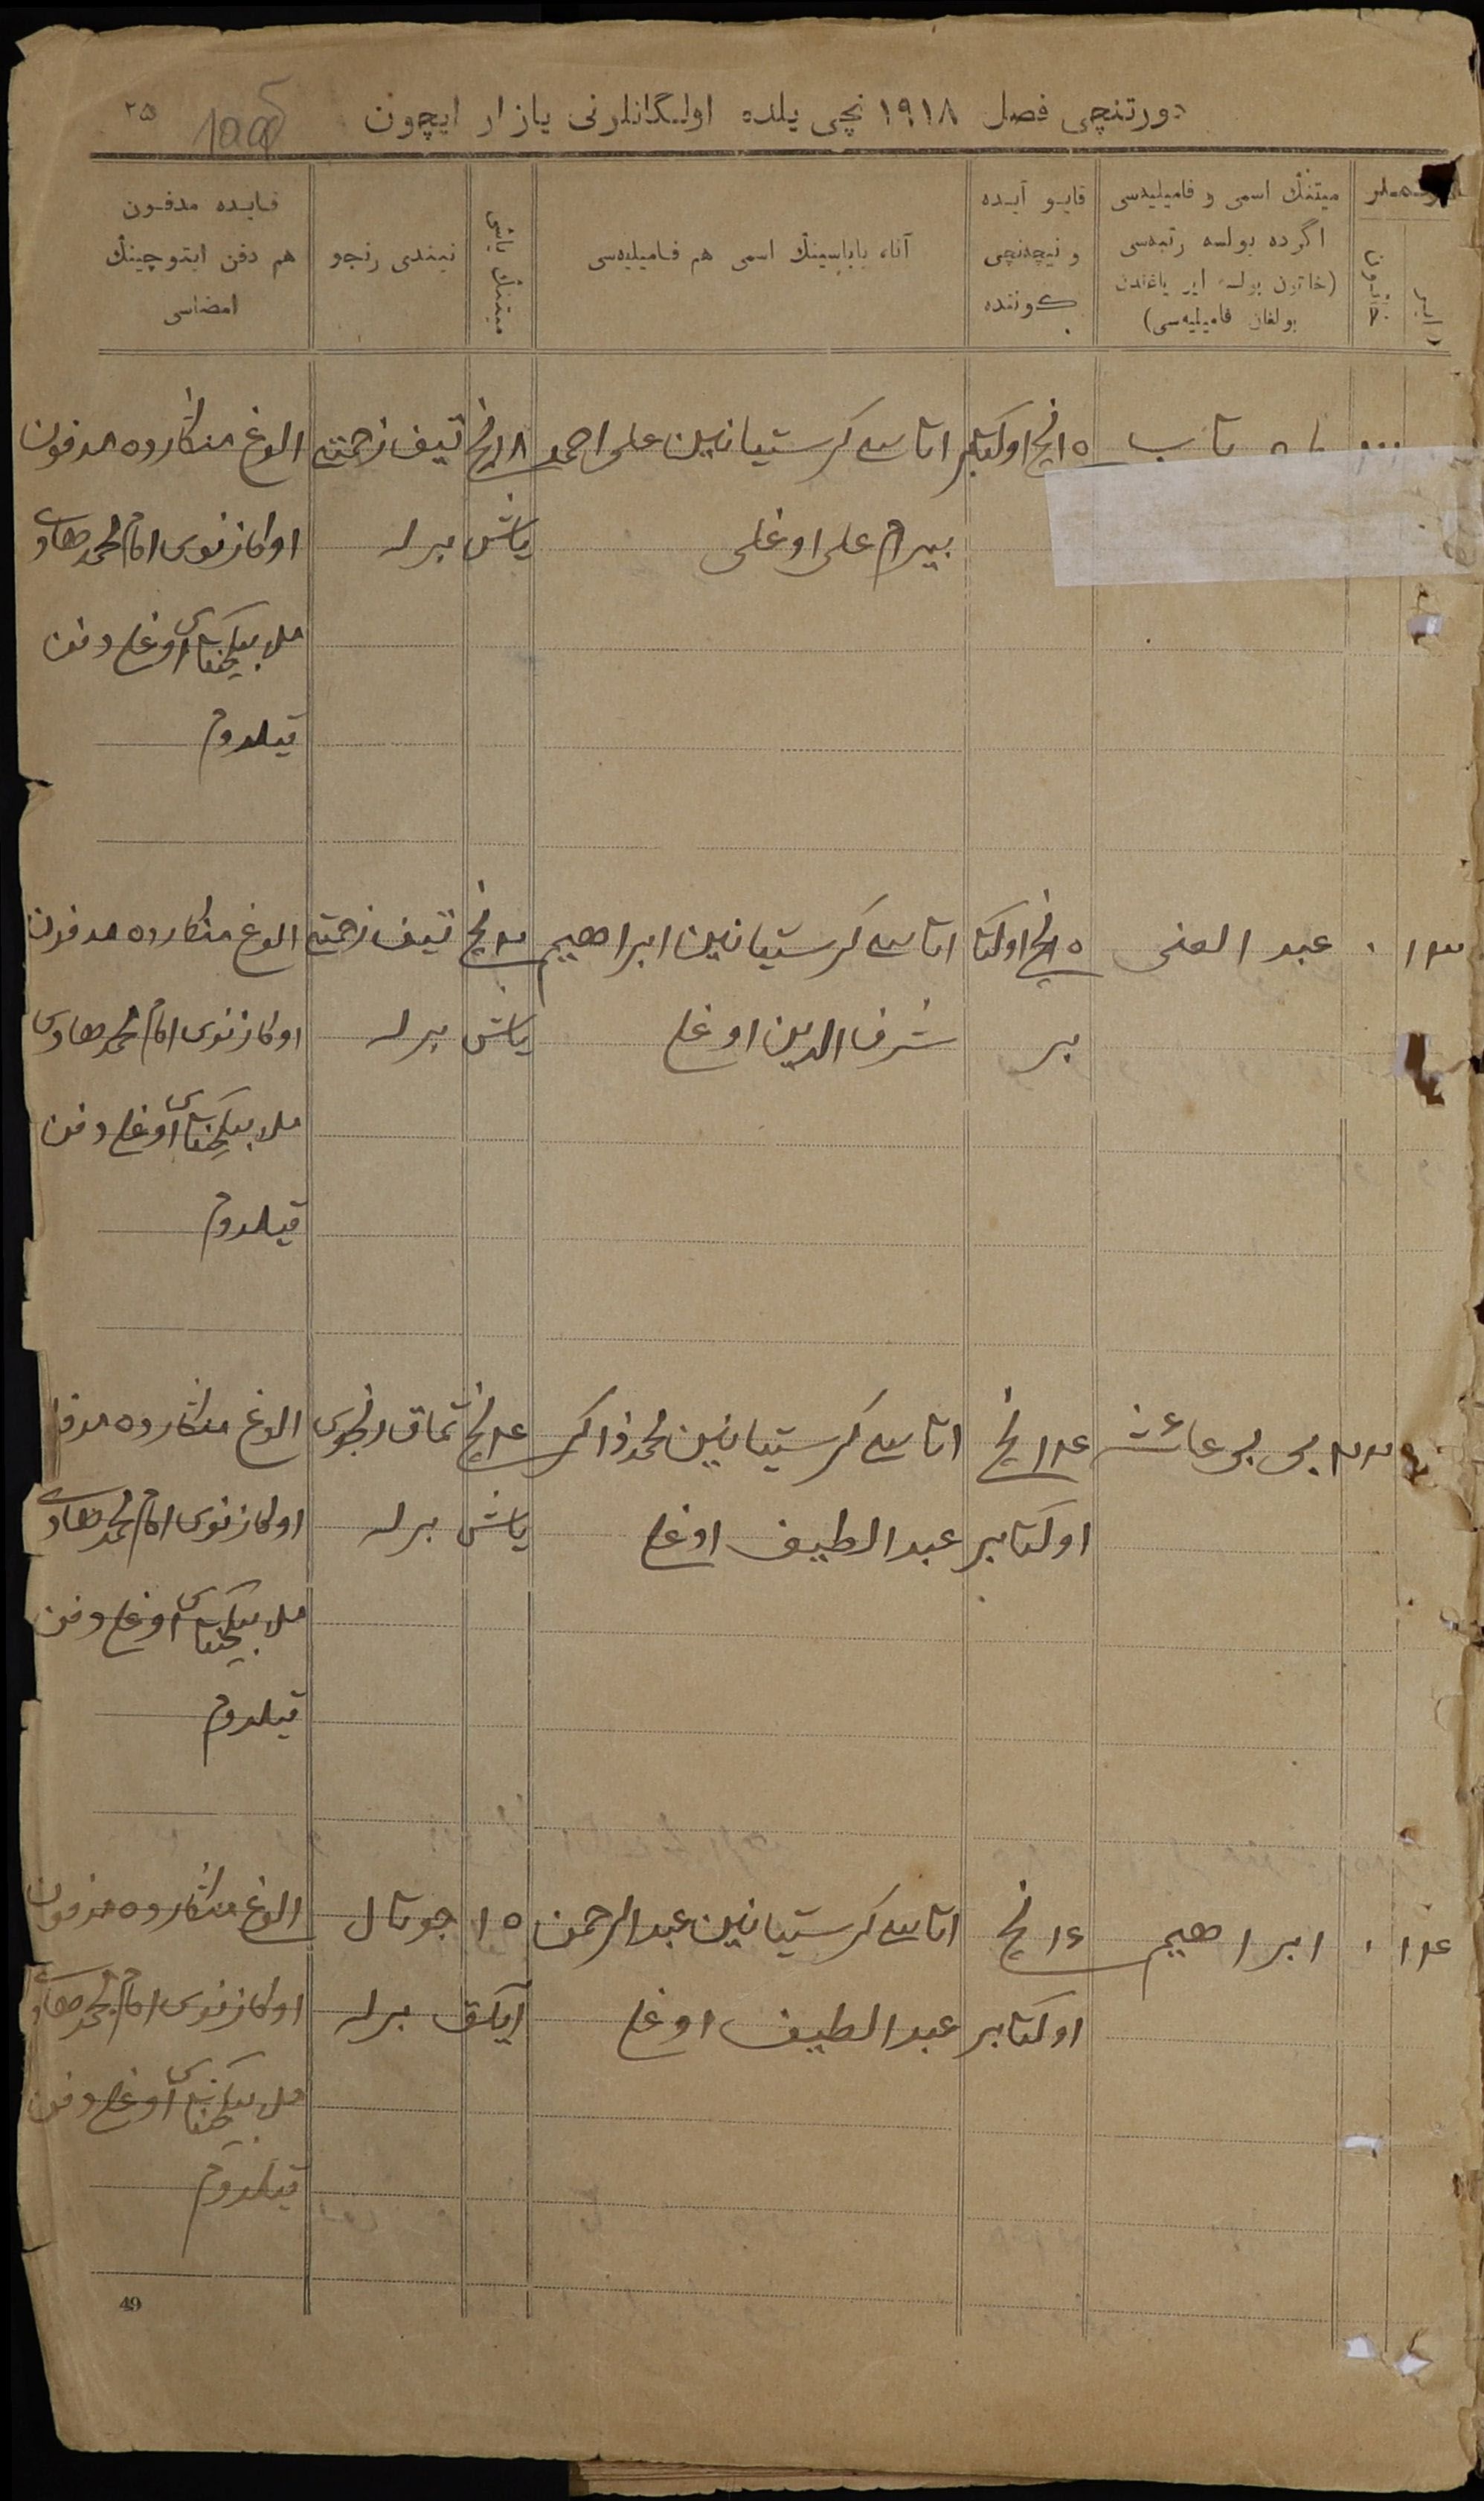 دورتنچی فصل ۱۹۱۸ نچی یلده اولگانلرنی یازار ایچون
۲۵
میتنڭ اسمی و فامیلیه‌سی اگرده بولسه رتبه‌سی (خاتون بولسه ایر یاغندن بولغان فامیلیه‌سی)
قایو آیده و نیچه‌نچی کوننده
آنا، باباسینڭ اسمی هم فامیلیه‌سی
میتنڭ یاشی
نیندی رنجو
قایده مدفون هم دفن ایتوچینڭ امضاسی
۱۵ نچی اوکتابر
اتاسی کرستیانین علی احمد
بیرام علی اوغلی
۱۸ نچی
یاش
تیف زحمتی
برله
الوغ منكارده مدفون
اوکازنوی امام محمدهادی
ملا بیکچنتای اوغلی دفن
قیلدوم
۱۳
عبد الغنی
۱۵ نچی اوکتا
بر
اتاسی کرستیانین ابراهیم
شرف الدین اوغلی
۲۰ نچی
یاش
تیف زحمتی
برله
الوغ منكارده مدفون
اوکازنوی امام محمدهادی
ملا بیکچنتای اوغلی دفن
قیلدوم
بی بی عائشه
۱۴ نچی
اوکتابر
اتاسی کرستیانین محمد ذاکر
عبد الطیف اوغلی
۴ نچی
یاش
تماق رنجوی
برله
الوغ منكارده مدفو
اوکازنوی امام محمدهادی
ملا بیکچنتای اوغلی دفن
قیلدوم
۱۴
ابراهیم
۱۶ نچی
اوکتابر
اتاسی کرستیانین عبد الرحمن
عبد الطیف اوغلی
۱۵
آیلق
جوتال
برله
الوغ منكارده مدفون
اوکازنوی امام محمدهادی
ملا بیکچنتای اوغلی دفن
قیلدوم
49